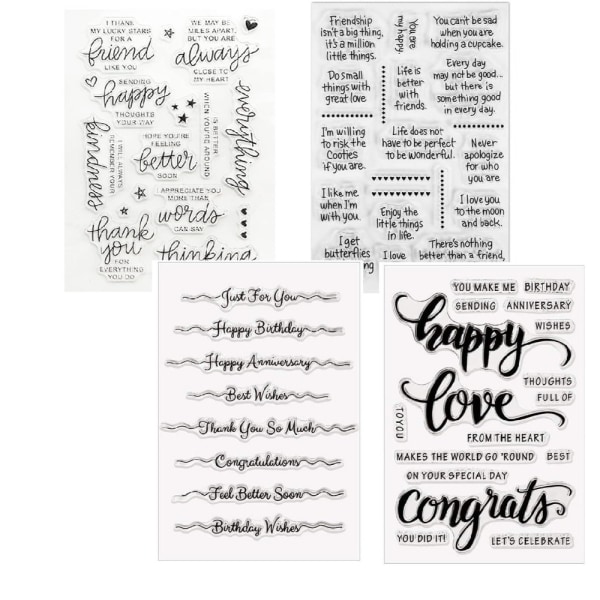 I THANK
MY LUCKY STARS
FOR A
friend
LIKE YOU
WE MAY BE
MILES APART,
BUT YOU ARE
always
CLOSE TO
MY HEART
SENDING
happy
THOUGHTS
YOUR WAY
everything
IS BETTER
WHEN YOU'RE AROUND
kindness
I WILL ALWAYS
REMEMBER YOUR
HOPE YOU'RE
FEELING
better
SOON
I APPRECIATE YOU
MORE THAN
words
CAN SAY
thank
you
FOR
EVERYTHING
YOU DO
thinking
Friendship
isn't a big thing,
it's a million
little things.
You are
my happy.
You can't be sad
when you are
holding a cupcake.
Do small
things with
great love
Life is
better
with
friends.
Every day
may not be good...
but there is
something good
in every day.
I'm willing
to risk the
Cooties
if you are.
Life does not
have to be perfect
to be wonderful.
Never
apologize
for who
you are
I like me
when I'm
with you.
Enjoy the
little things
in life.
I love you
to the moon
and back.
I get
butterflies
I love
There's nothing
better than a friend,
Just For You
Happy Birthday
Happy Anniversary
Best Wishes
Thank You So Much
Congratulations
Feel Better Soon
Birthday Wishes
YOU MAKE ME BIRTHDAY
SENDING ANNIVERSARY
happy
WISHES
love
THOUGHTS
FULL OF
TO YOU
FROM THE HEART
MAKES THE WORLD GO 'ROUND BEST
ON YOUR SPECIAL DAY
congrats
YOU DID IT! LET'S CELEBRATE